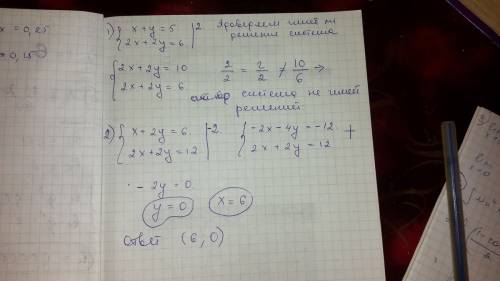 x = 0,25
= 0,15
1) { x + y = 5 | 2 Проверяем имеет ли
2x + 2y = 6 решения система
{ 2x + 2y = 10
2x + 2y = 6
2/2 = 2/2 ≠ 10/6 →
система не имеет
решений
2) { x + 2y = 6 | -2
2x + 2y = 12
{ -2x - 4y = -12 +
2x + 2y = 12
- 2y = 0
y = 0 x = 6
Ответ (6; 0)